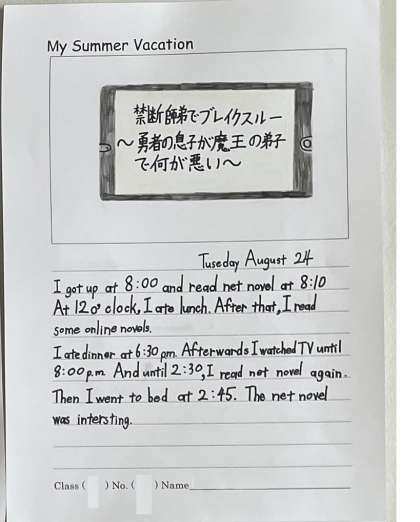 My Summer Vacation
禁断師弟でブレイクスルー
～勇者の息子が魔王の弟子
で何が悪い～
Tuseday August 24
I got up at 8:00 and read net novel at 8:10
At 12 o'clock, I ate lunch. After that, I read
some online novels.
I ate dinner at 6:30 pm. Afterwards I watched TV until
8:00 p.m. And until 2:30, I read net novel again.
Then I went to bed at 2:45. The net novel
was intersting.
Class ( ) No. ( ) Name